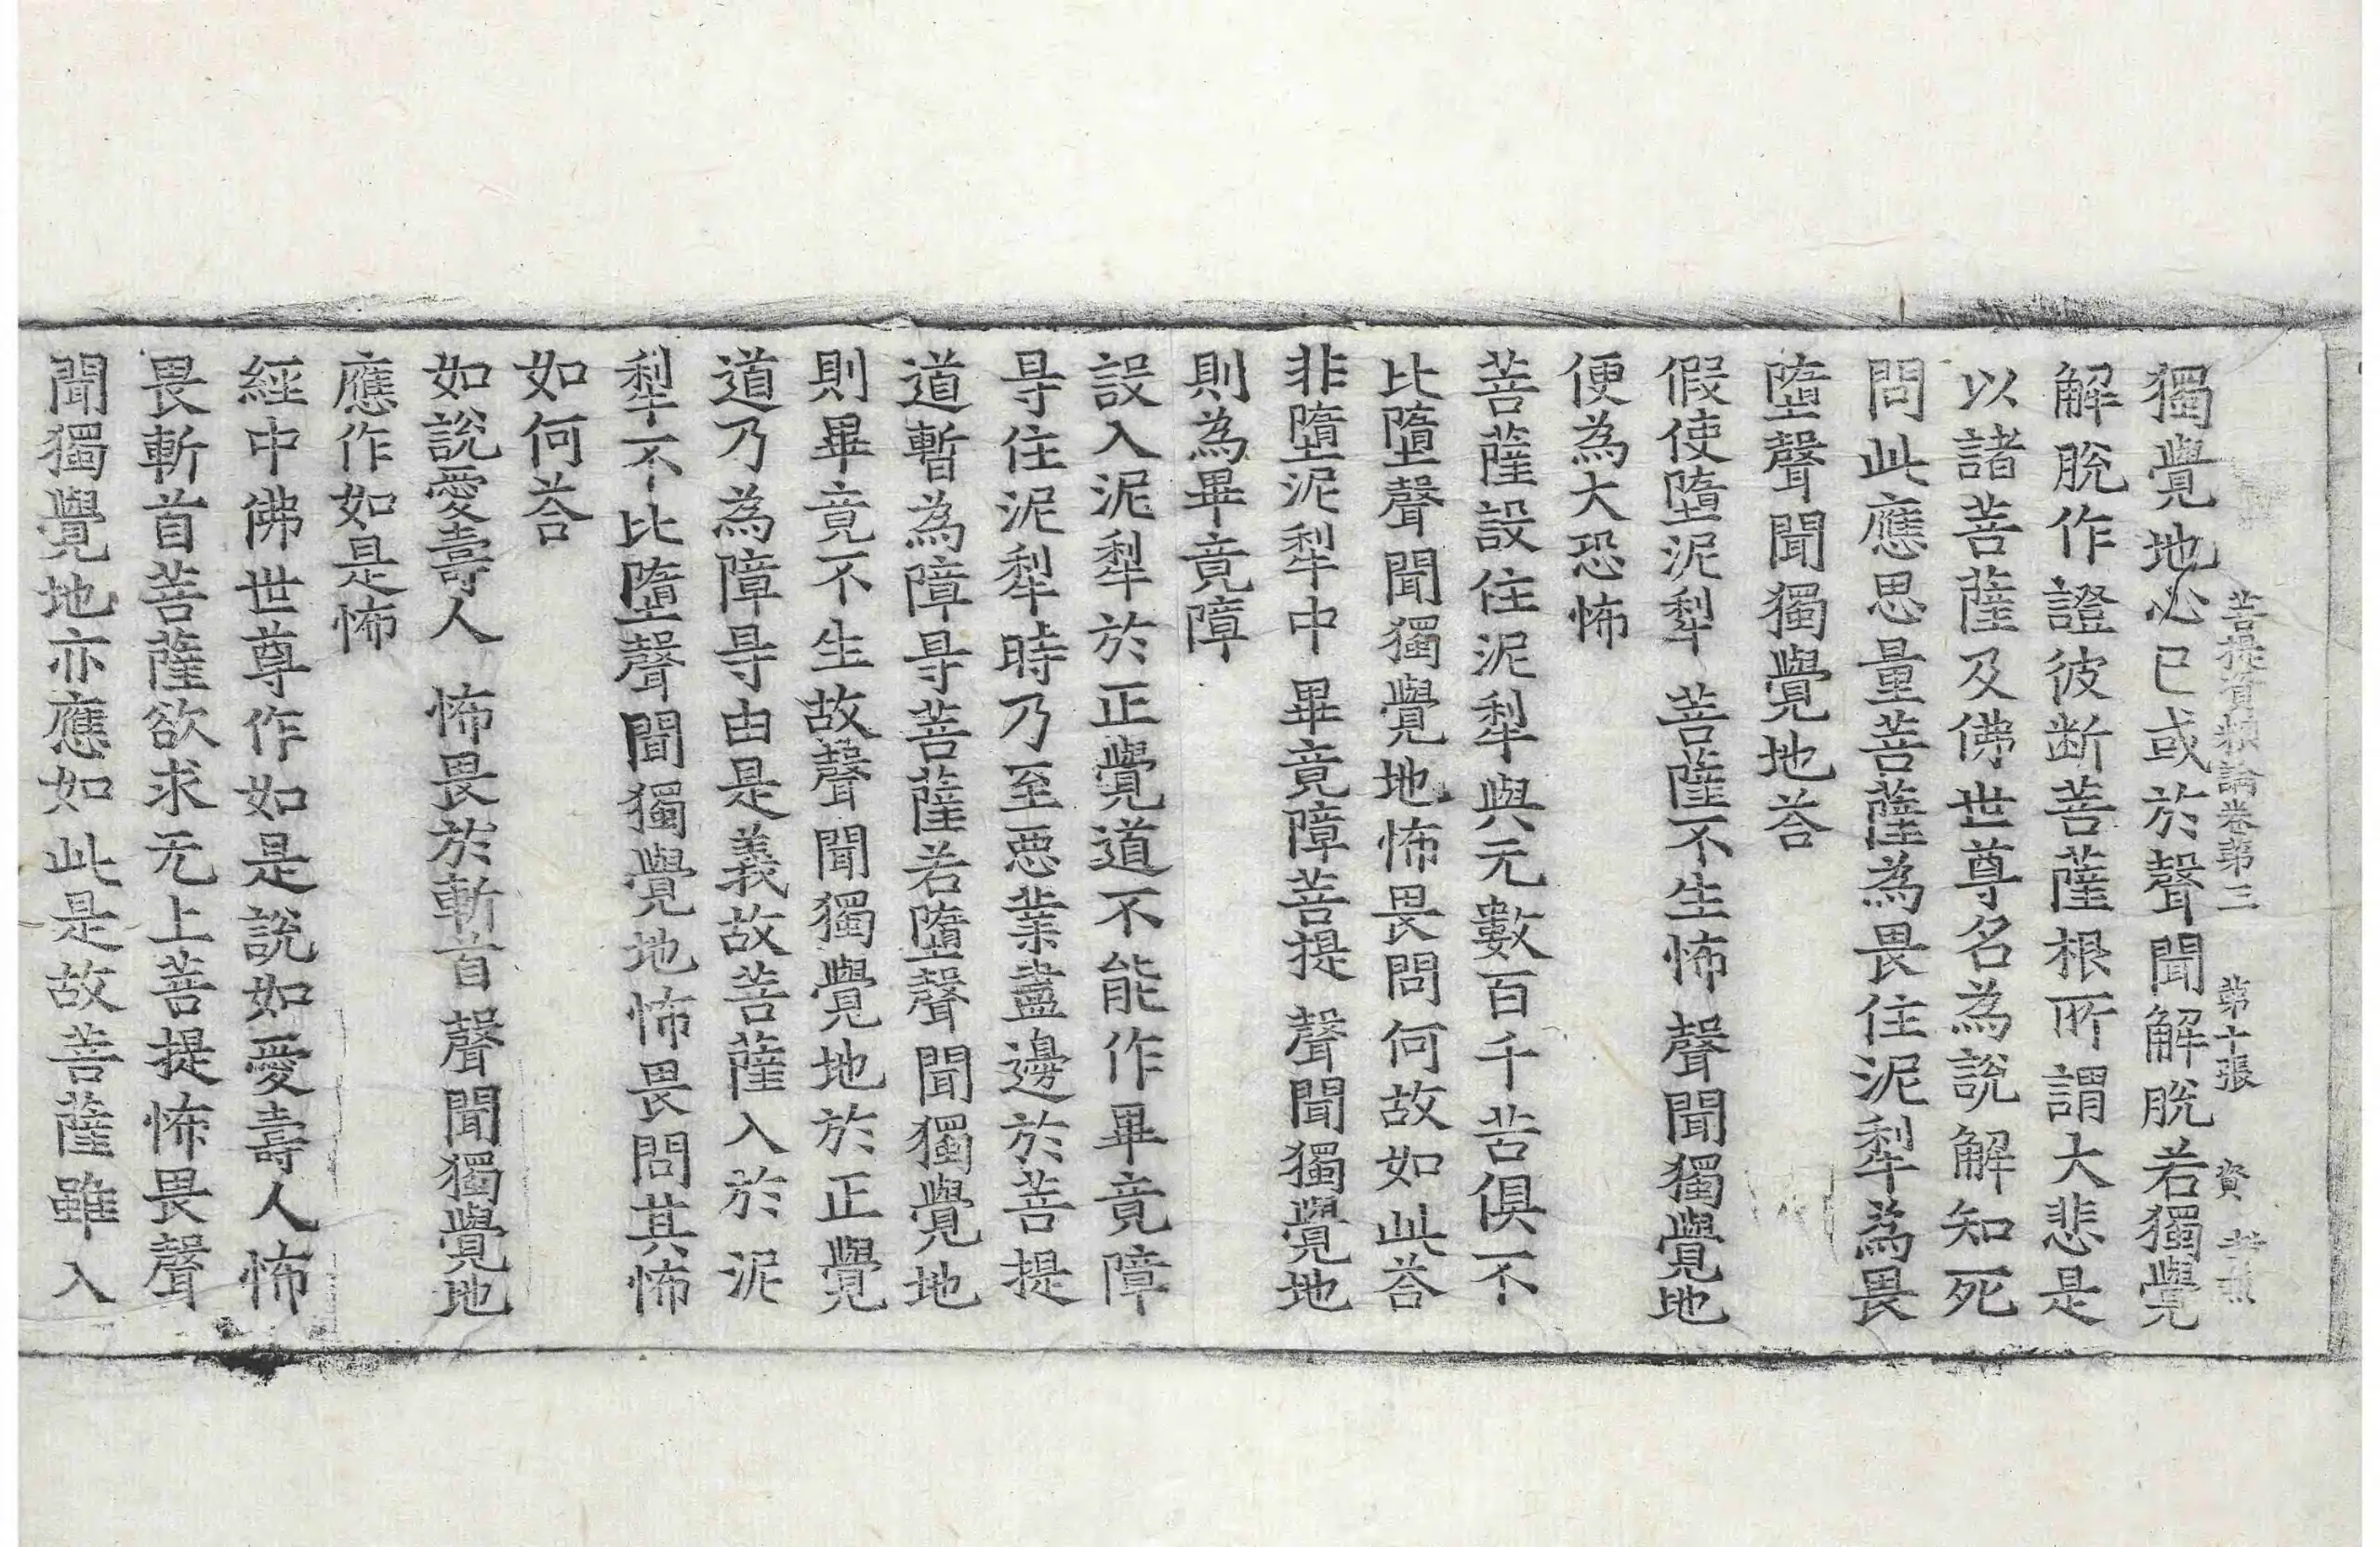 菩提資糧論卷第三 第十張 資
獨覺地必已或於聲聞解脫若獨覺
解脫作證彼断菩薩根所謂大悲是
以諸菩薩及佛世尊名為說解知死
問此應思量菩薩為畏住泥犁為畏
墮聲聞獨覺地荅
假使墮泥犁 菩薩不生怖 聲聞獨覺地
便為大恐怖
菩薩設住泥犁與无數百千苦俱不
比墮聲聞獨覺地怖畏問何故如此荅
非墮泥犁中 畢竟障菩提 聲聞獨覺地
則為畢竟障
設入泥犁於正覺道不能作畢竟障
㝵住泥犁時乃至惡業盡邊於菩提
道暫為障㝵菩薩若墮聲聞獨覺地
則畢竟不生故聲聞獨覺地於正覺
道乃為障㝵由是義故菩薩入於泥
犁不比墮聲聞獨覺地怖畏問其怖
如何荅
如說愛壽人 怖畏於斬首 聲聞獨覺地
應作如是怖
經中佛世尊作如是說如愛壽人怖
畏斬首菩薩欲求无上菩提怖畏聲
聞獨覺地亦應如此是故菩薩雖入